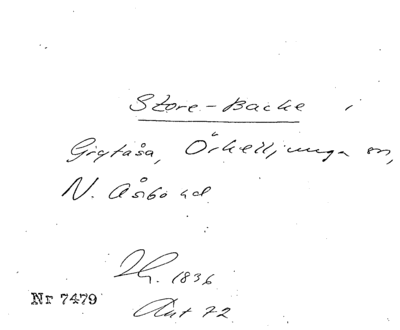 Store-Backe i
Grytåsa, Örkelljunga sn,
N. Åsbo hd
Th. 1836
Ant 72
Nr 7479